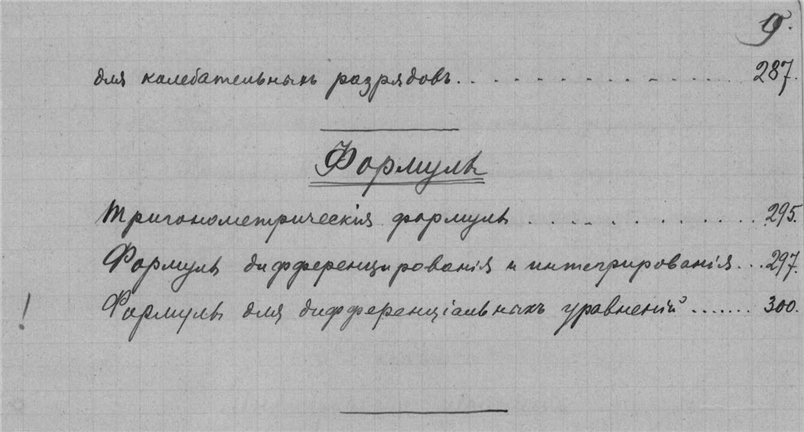 9.
для колебательныхъ разрядовъ . . . . . . . . . . . . 287.
Формулы
Тригонометрическія формулы . . . . . . . . . . . 295.
Формулы дифференцированія и интегрированія . . . 297.
! Формулы для дифференціальныхъ уравненій . . . . . . . 300.